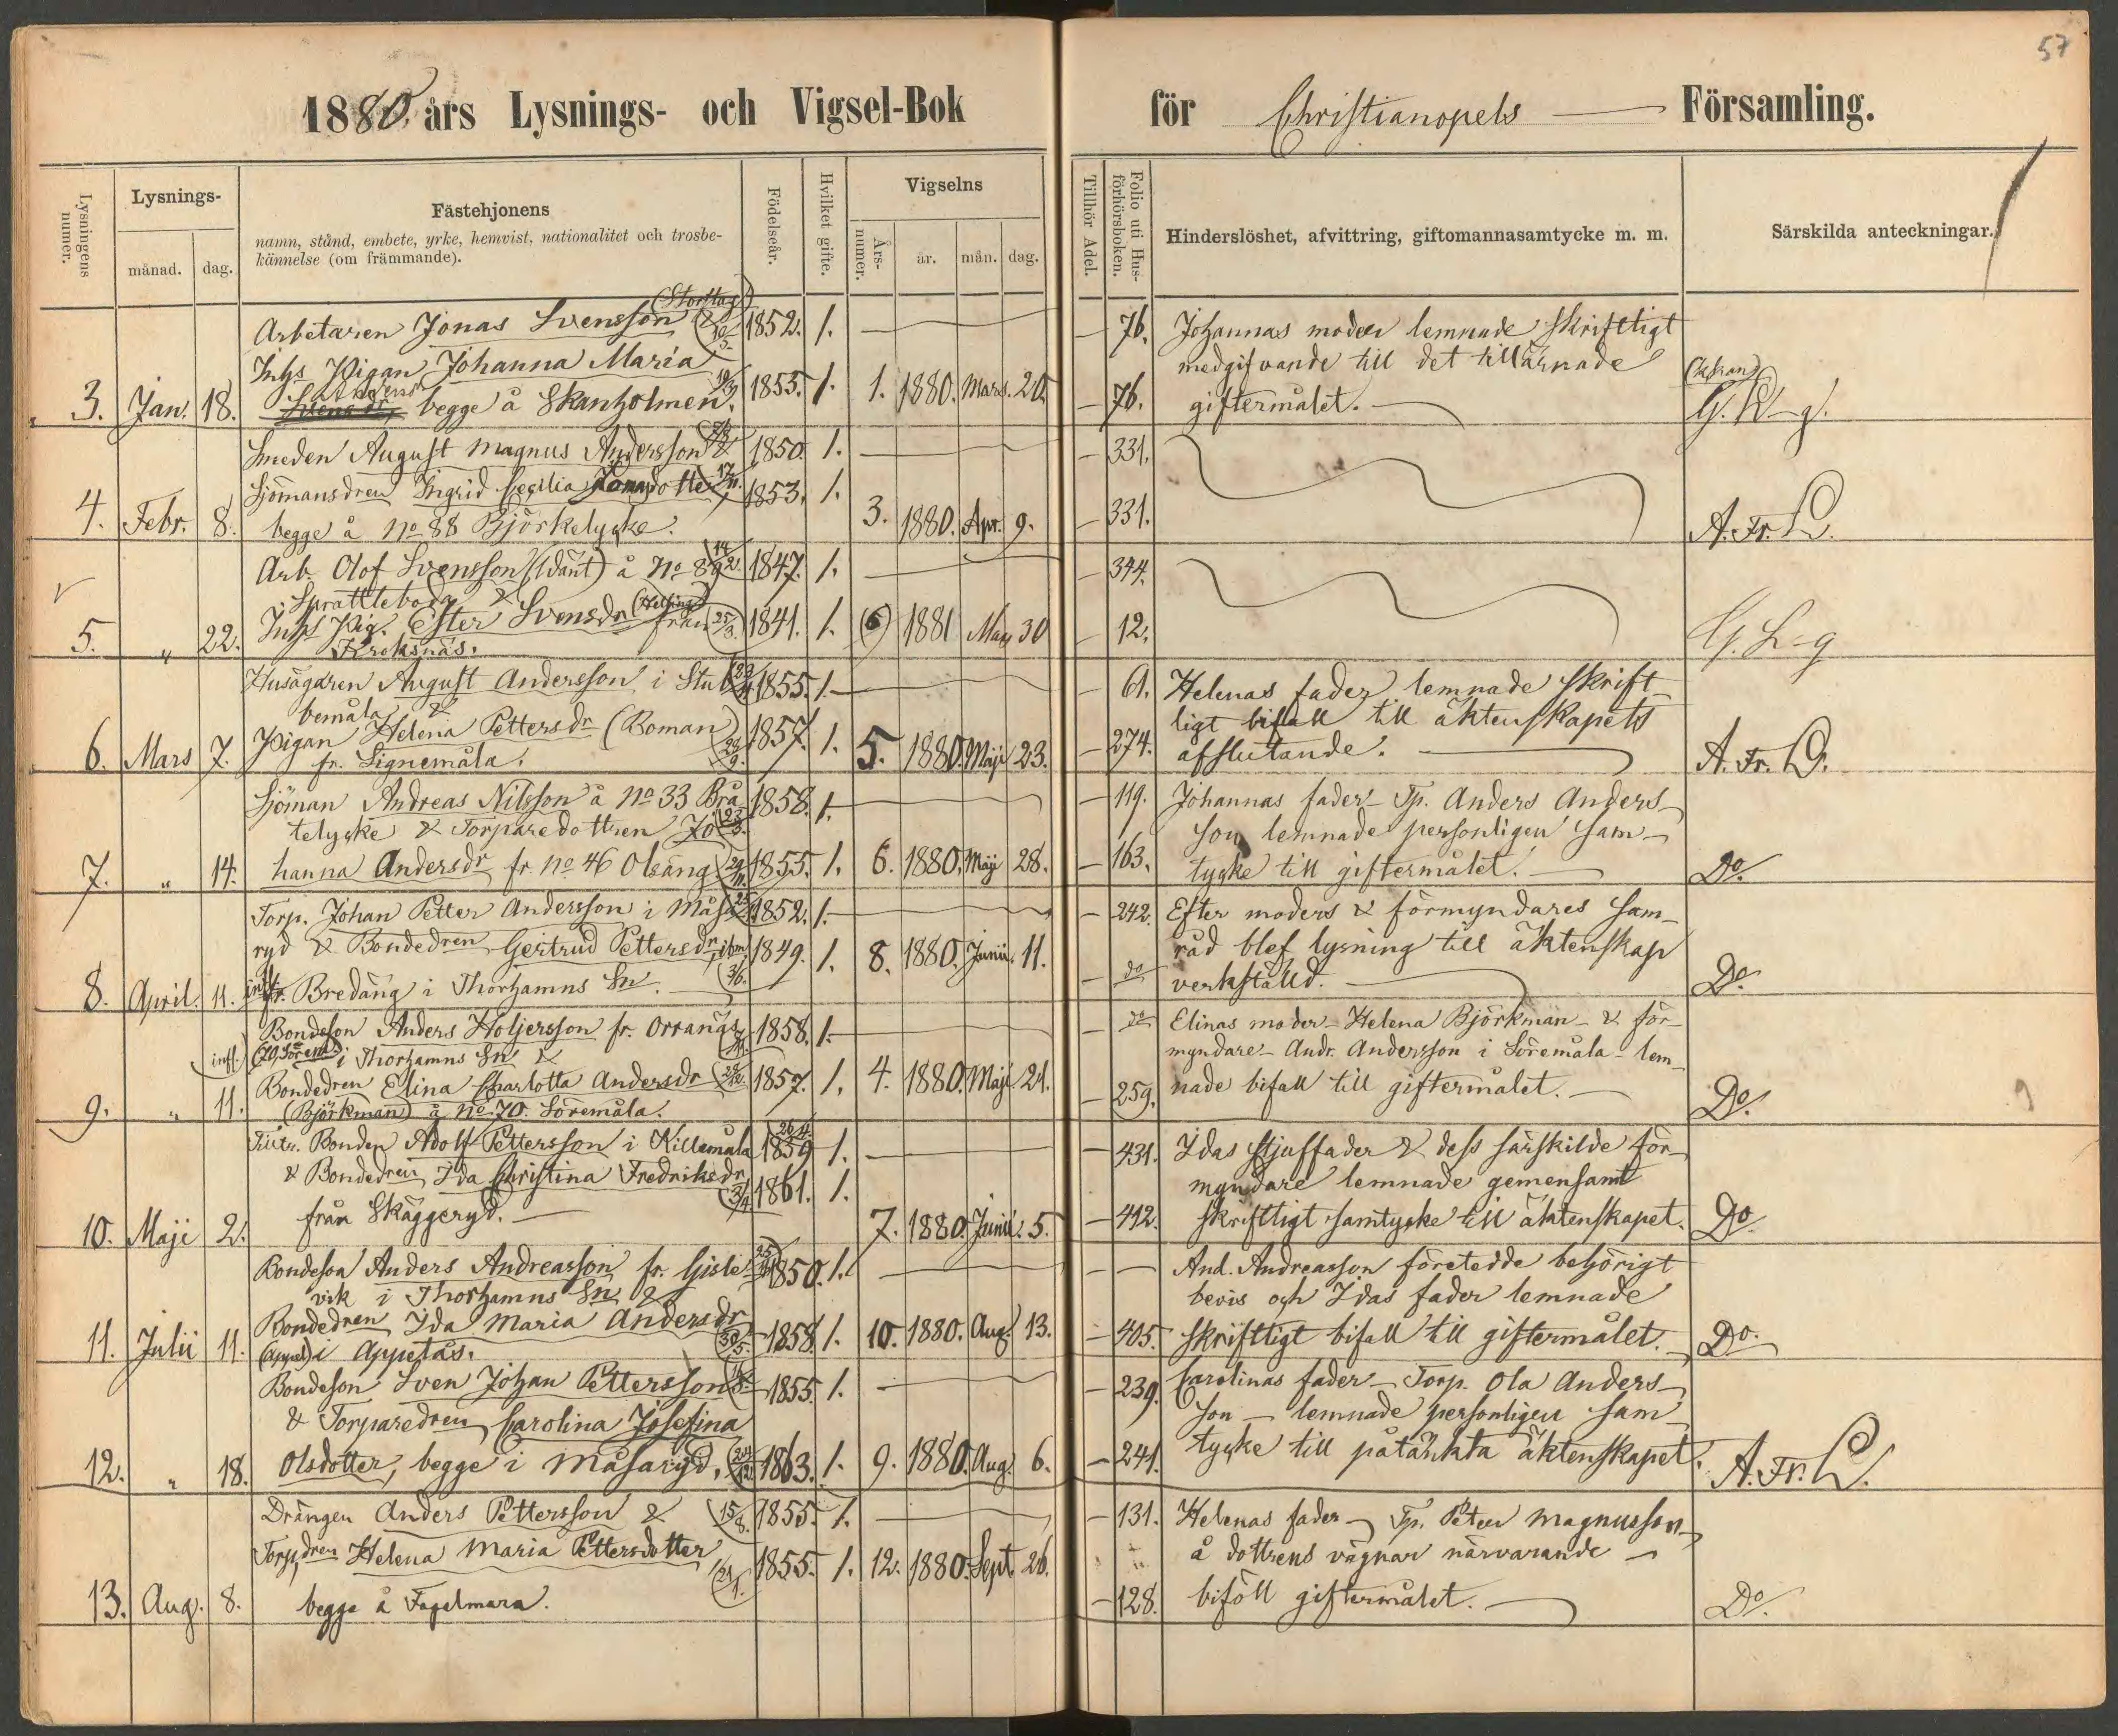 57
1880. års Lysnings- och Vigsel-Bok för Christianopels Församling.
Lysningens numer.
Lysnings-
månad.
dag.
Fästehjonens
namn, stånd, embete, yrke, hemvist, nationalitet och trosbe-
kännelse (om främmande).
Födelseår.
Hvilket gifte.
Vigselns
Års-numer.
år.
mån.
dag.
Tillhör Adel.
Folio uti Hus-förhörsboken.
Hinderslöshet, afvittring, giftomannasamtycke m. m.
Särskilda anteckningar.
Arbetaren Jonas Svensson & 1852. 1. — 76. Johannas moder lemnade skriftligt
Inhs Pigan Johanna Maria medgifvande till det tillärnade
3. Jan. 18. begge å Skanholmen. 19/3 1855. 1. 1. 1880. Mars. 20. — 76. giftermålet. G. L-g.
Smeden August Magnus Andersson & 1850. 1. — 331.
Sjömansdren Ingrid Cecilia Jonasdotter 17/11. 1853. 1.
4. Febr. 8. begge å No 88 Björkelycke. 3. 1880. Apr. 9. — 331. A. Fr. L.
Arb. Olof Svensson å No 89 14/2. 1847. 1. — 344.
Sprattleboda &
Inhs Pig. Ester Svensdr från 25/3. 1841. 1. (6) 1881 Maj 30 — 12.
5. " 22. Kroksnäs. G. L-g
Husägaren August Andersson i Stub- 1855. 1. — 61. Helenas fader lemnade skrift-
bemåla & ligt bifall till äktenskapets
6. Mars 7. Pigan Helena Pettersdr (Boman) 1857. 1. 5. 1880. Maji 23. — 274. afslutande. A. Fr. L.
fr. Signemåla.
Sjöman Andreas Nilsson å No 33 Brå- 1858. 1. — 119. Johannas fader - Tp. Anders Anders-
telycke & Torparedottren Jo- son lemnade personligen sam-
7. " 14. hanna Andersdr fr. No 46 Olsäng 29/11. 1855. 1. 6. 1880. Maji 28. — 163. tycke till giftermålet. Do.
Torp. Johan Petter Andersson i Måsa- 1852. 1. — 242. Efter moders & förmyndares sam-
ryd & Bondedren Gertrud Pettersdr, ibm, 1849. 1. 8. 1880. Junii. 11. råd blef lysning till äktenskap
8. April. 11. Bredäng i Thorhamns Sn. 3/6. — do verkställd. Do.
Bondeson Anders Holjersson fr. Orranäs 1858. 1. — do Elinas moder - Helena Björkman - & för-
i Thorhamns Sn & myndare - Andr. Andersson i Söremåla - lem-
Bondedren Elina Charlotta Andersdr 1857. 1. 4. 1880. Maji 21. — 259. nade bifall till giftermålet. Do.
9. " 11. (Björkman) å No 70. Söremåla.
Bonden Adolf Pettersson i Killemåla 26/4 1859 1. — 431. Idas stjuffader & dess särskilde för-
& Bondedren Ida Christina Fredriksdr 1861. 1. myndare lemnade gemensamt
10. Maji 2. från Skäggeryd. 7. 1880. Junii. 5. — 412. skriftligt samtycke till äktenskapet. Do
Bondeson Anders Andreasson fr. Gisle- 1850. 1. — And. Andreasson företedde behörigt
vik i Thorhamns Sn & bevis och Idas fader lemnade
11. Julii 11. Bondedren Ida Maria Andersdr 30/5. 1858. 1. 10. 1880. Aug. 13. — 405. skriftligt bifall till giftermålet. Do.
(Appel) i Appelås.
Bondeson Sven Johan Pettersson 1855. 1. — 239. Carolinas fader - Torp. Ola Anders-
& Torparedren Carolina Josefina son - lemnade personligen sam-
12. " 18. Olsdotter, begge i Måsaryd. 24/12 1863. 1. 9. 1880. Aug. 6. — 241. tycke till påtänkta äktenskapet. A. Fr. L.
Drängen Anders Pettersson & 15/8. 1855. 1. — 131. Helenas fader - Tp. Peter Magnusson -
Torp.dren Helena Maria Pettersdotter 21/1. 1855. 1. 12. 1880. Sept. 26. å dottrens vägnar närvarande -
13. Aug. 8. begge å Fagelmara. — 128. biföll giftermålet. Do.